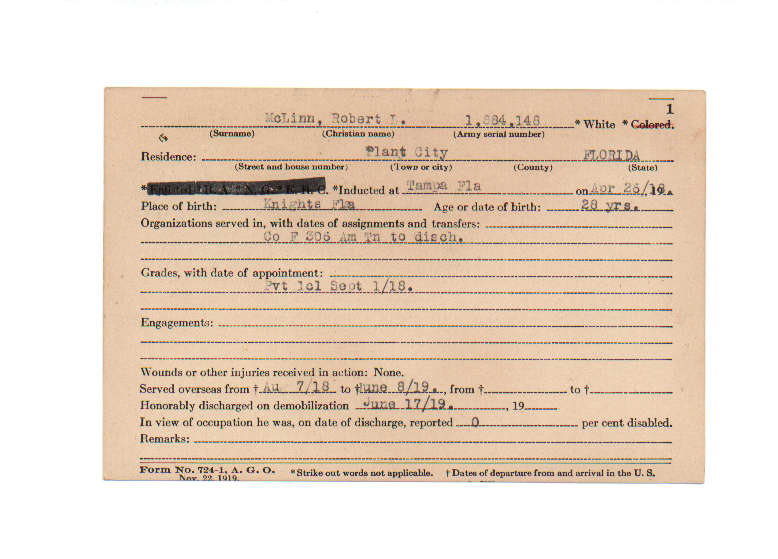 1
McLinn, Robert L. 1,884,148 * White * Colored.
(Surname) (Christian name) (Army serial number)
Residence: Plant City FLORIDA
(Street and house number) (Town or city) (County) (State)
*Inducted at Tampa Fla on Apr 26/18
Place of birth: Knights Fla Age or date of birth: 28 yrs.
Organizations served in, with dates of assignments and transfers:
Co F 306 Am Tn to disch.
Grades, with date of appointment:
Pvt 1cl Sept 1/18.
Engagements:
Wounds or other injuries received in action: None.
Served overseas from † Au 7/18 to † June 8/19., from † to †
Honorably discharged on demobilization June 17/19. , 19
In view of occupation he was, on date of discharge, reported 0 per cent disabled.
Remarks:
Form No. 724-1, A. G. O. *Strike out words not applicable. † Dates of departure from and arrival in the U. S.
Nov. 22, 1919.